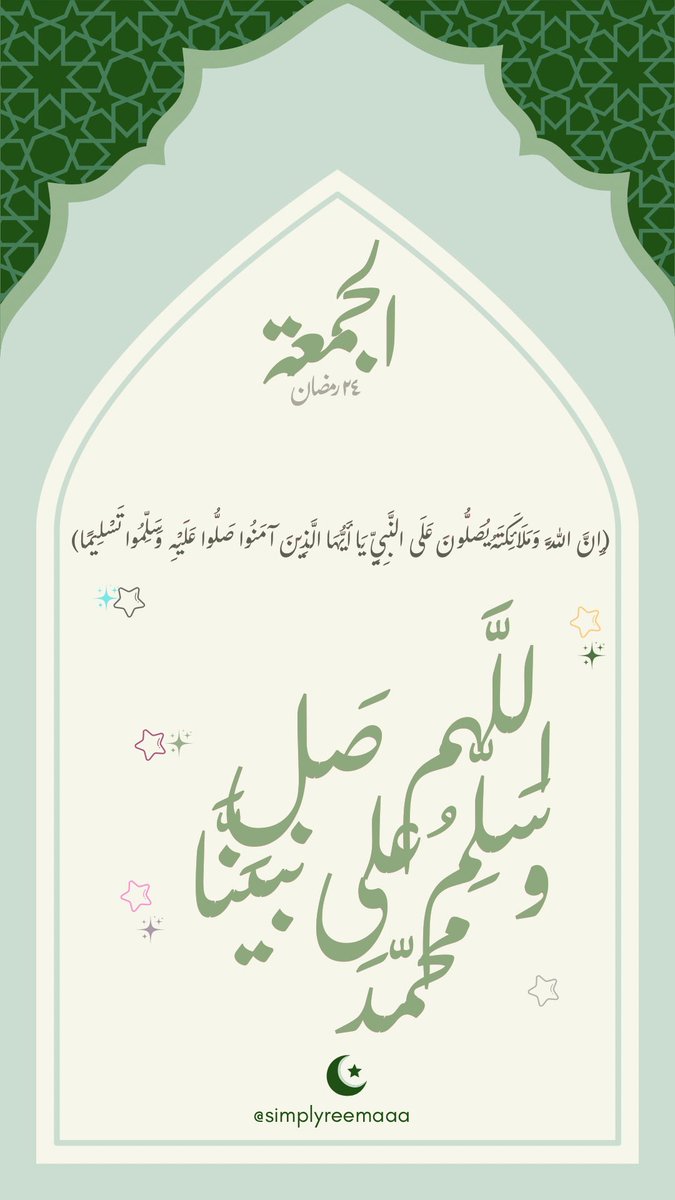 الجمعة
٢٤ رمضان
(إِنَّ اللَّهَ وَمَلَائِكَتَهُ يُصَلُّونَ عَلَى النَّبِيِّ يَا أَيُّهَا الَّذِينَ آمَنُوا صَلُّوا عَلَيْهِ وَسَلِّمُوا تَسْلِيمًا)
اللَّهم صَل
وسَلِم على نبيَنَّا
محمّد
@simplyreemaaa